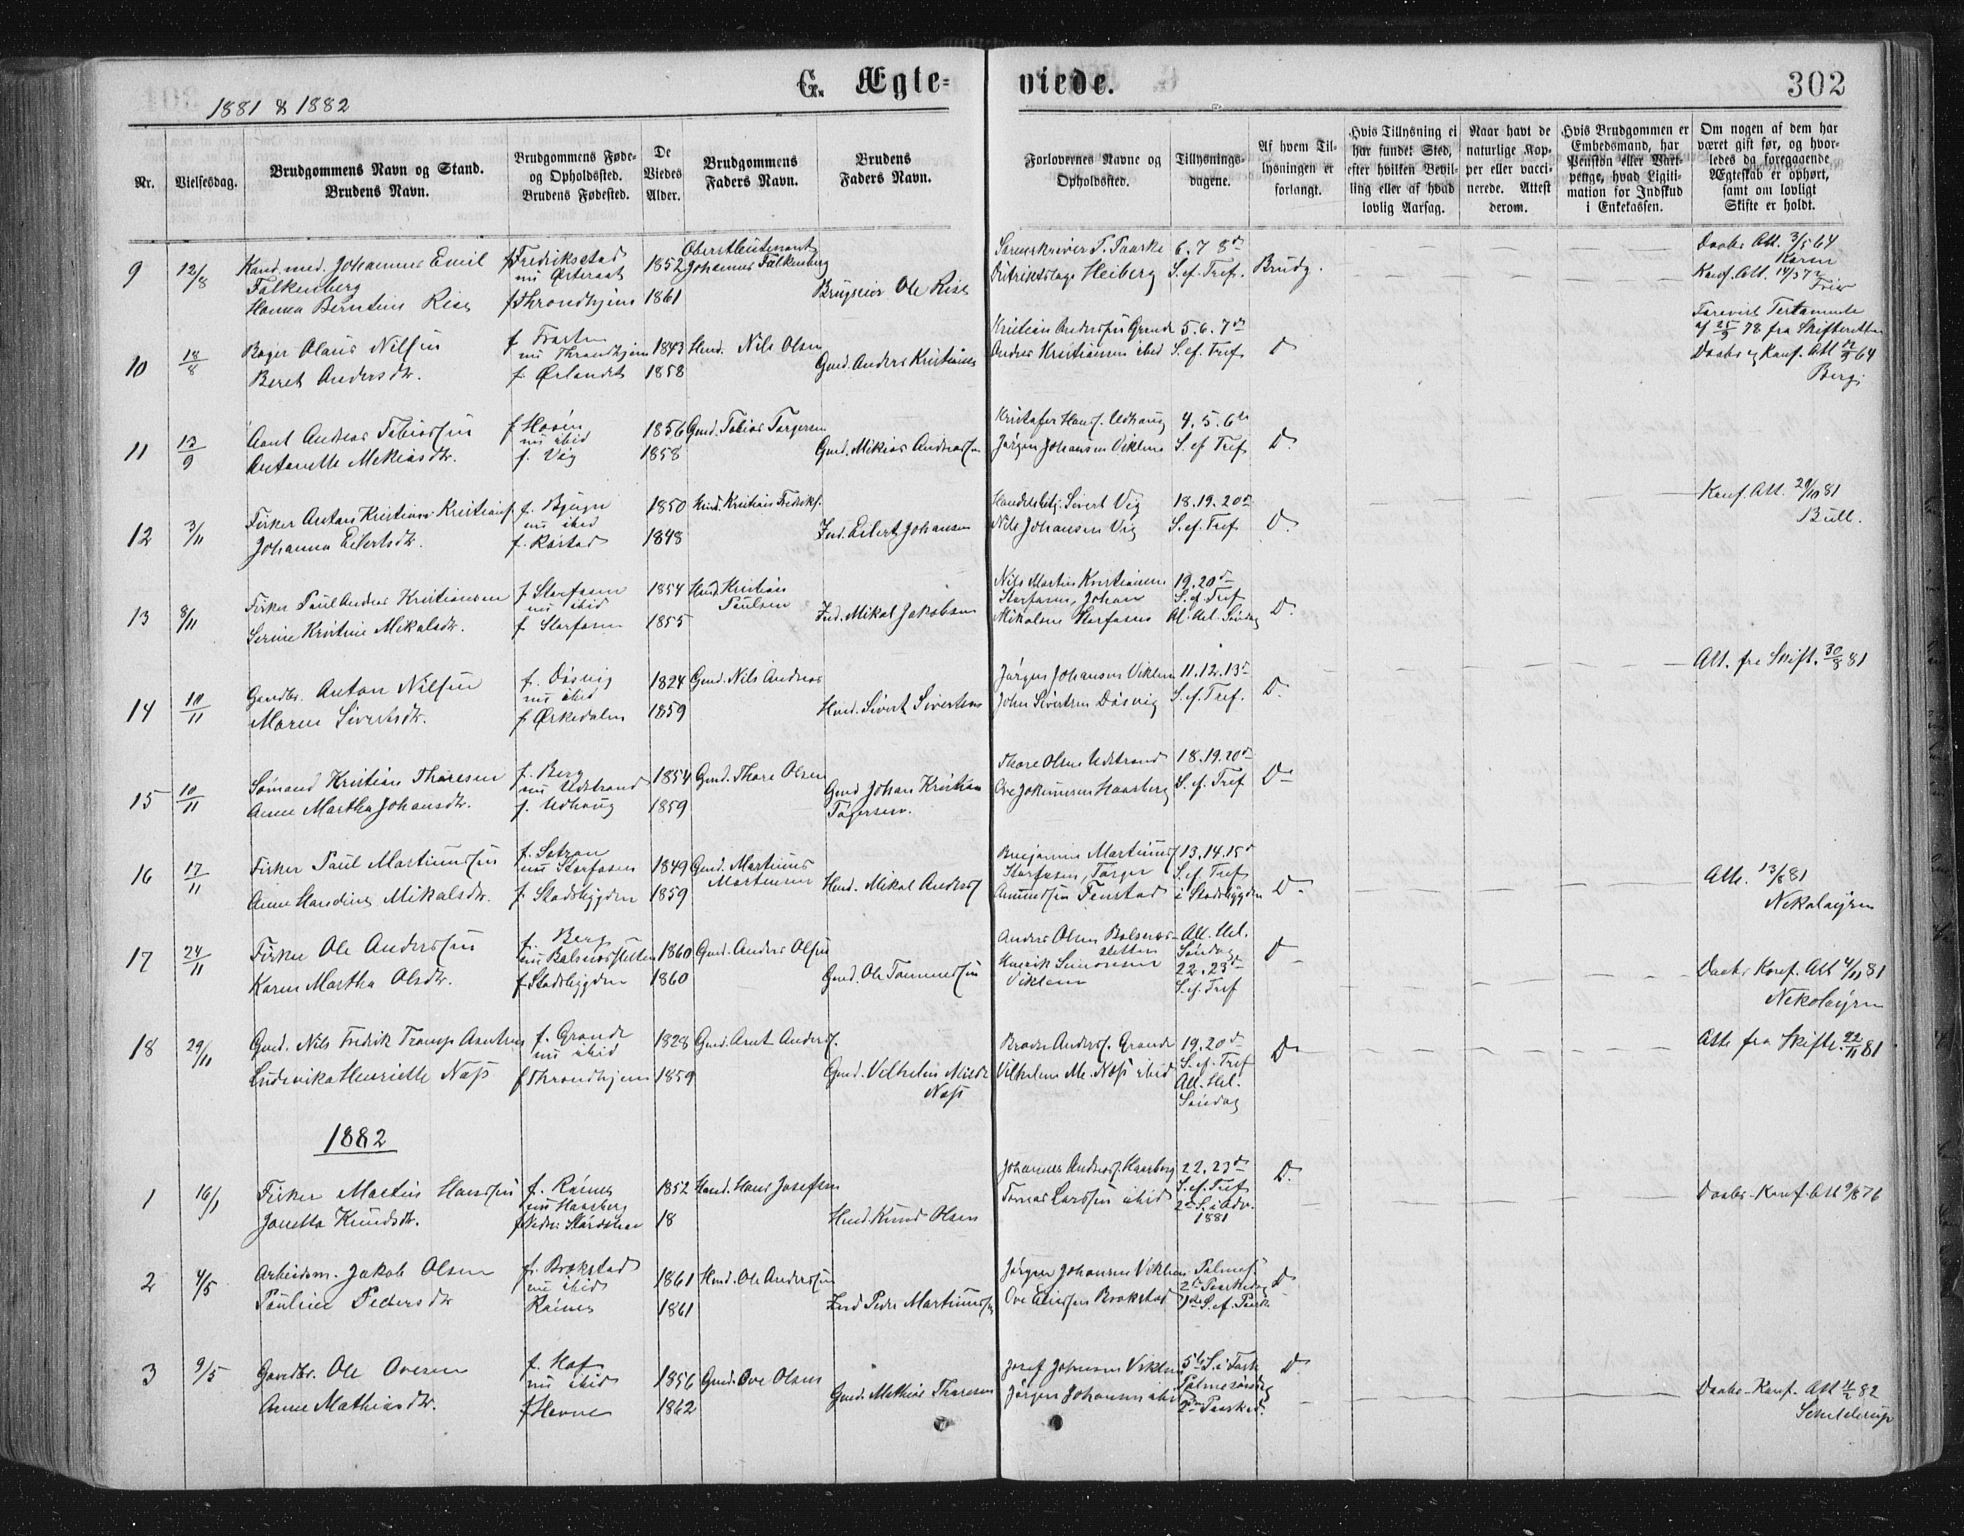 1881 & 1882
G. Ægte-
viede.
302
Nr.
Vielsesdag.
Brudgommens Navn og Stand.
Brudens Navn.
Brudgommens Føde-
og Opholdssted.
Brudens Fødested.
De
Viedes
Alder.
Brudgommens
Faders Navn.
Brudens
Faders Navn.
Forlovernes Navne og
Opholdssted.
Tillysnings-
dagene.
Af hvem Til-
lysningen er
forlangt.
Hvis Tillysning ei
har fundet Sted,
efter hvilken Bevil-
ling eller af hvad
lovlig Aarsag.
Naar havt de
naturlige Kop-
per eller vacci-
nerede. Attest
derom.
Hvis Brudgommen er
Embedsmand, har
Pension eller Vart-
penge, hvad Ligiti-
mation for Indskud
i Enkekassen.
Om nogen af dem har
været gift før, og hvor-
ledes da foregaaende
Ægteskab er ophørt,
samt om lovligt
Skifte er holdt.
9 12/8 Kand. med. Johannes Emil
Falkenberg
Hanna Berntine Rise
f Fredriksstad
nu Østeraat
f Throndhjem
1852
1861
Oberstleutenant
Johannes Falkenberg
Brugseier Ole Rise
Sorenskriver T. Paaske
Distriktslæge Heiberg
6. 7. 8de
S. ef. Tref.
Brudg.
Daabs Att. 3/5 64
Konf. Att. 14/5 72
10 18/8 Bager Olaus Nilsen
Beret Andersdtr.
f. Frosten
nu Throndhjem
f. Ørlandet
1843
1858
Hmd. Nils Olsen
Gmd. Anders Kristiansen
Kristian Andersen Grande
Anders Kristiansen ibid
5. 6. 7de
S. ef. Tref
D
af 25/9 78 fra Skifteretten
Daabs og Konf. Att 64
Berg
11 13/9 Aant Andreas Tobiassen
Antonette Mekiasdtr.
f Hoven
nu ibid
f. Vig
1856
1858
Gmd. Tobias Torgersen
Gmd. Mikias Andreassen
Kristofer Hans. Udhaug
Jørgen Johansen Viklem
4. 5. 6te
S. ef Tref
D.
12 3/11 Fisker Anton Kristians Kristians.
Johanna Eilertsdtr.
f. Bjugn
nu ibid
f. Røstad
1850
1848
Hmd. Kristians Fredriks.
Ind. Eilert Johansen
Handelsbetj. Sivert Vig
Nils Johansen Vig
18. 19. 20de
S. ef. Tref
D
Konf. Att. 29/10 81
Bull.
13 8/11 Fisker Paul Andreas Kristiansen
Serine Kristine Mikalsdtr.
f Storfosen
nu ibid
f Storfosen
1854
1855
Hmd. Kristian
Paulsen
Ind. Mikal Jakobsen
Nils Martin Kristiansen
Storfosen, Johan
Mikalsen Storfosen
19. 20de
S. ef. Tref
Al. Hel. Søndag
D.
14 10/11 Gaardbr. Anton Nilsen
Maren Sivertsdtr.
f. Døsvig
nu ibid
f Ørkedalen
1824
1859
Gmd. Nils Andreas
Hmd. Sivert Sivertsen
Jørgen Johansen Viklem
John Sivertsen Døsvig
11. 12. 13de
S. ef. Tref.
D.
Att. fra Skift. 30/8 81
15 10/11 Sømand Kristian Tharesen
Anne Martha Johansdtr.
f. Berg
nu Udstrand
f. Udhaug
1854
1859
Gmd. Thare Olsen
Gmd Johan Kristian
Torgersen.
Thore Olsen Udstrand
Ove Jokumsen Haarberg
18. 19. 20de
S. ef. Tref
D
16 17/11 Fisker Paul Martinussen
Anne Handine Mikalsdtr.
f. Setran
nu Storfosen
f Stadsbygden
1849
1859
Gmd. Martinus
Mortensen
Hmd. Mikal Anders.
Benjamin Martinus
Storfosen, Torger
Amundsen Fenstad
13. 14. 15de
S. ef. Tref
i Stadsbygden
D.
Att. 13/8 81
Nikolaysen
17 24/11 Fisker Ole Anderssen
Karen Martha Olsdtr.
f. Berg
nu Balsnæssletten
f Stadsbygden
1860
1860
Gmd. Anders Olsen
Gmd. Ole Tommessen
Anders Olsen Balsnæs-
sletten
Henrik Simonsen
Viklem
All. Hel.
Søndag
22. 23de
S. ef. Tref
D
Daabs Konf. Att 4/11 81
Nikolaysen
18 29/11 Gmd. Nils Fredrik Tramp Arntsen
Ludevika Henriette Næss
f. Grande
nu ibid
f Throndhjem
1828
1859
Gmd. Arnt Anders.
Gmd. Vilhelm Milde
Næss
Broder Anders. Grande
Vilhelm M. Næss ibid
19. 20de
S. ef. Tref
All. Hel.
Søndag
D
Att fra Skifte. 22/11 81
1882
1 16/1 Fisker Martin Hanssen
Janetta Knudsdtr.
f. Ramnes
nu Haarberg
1852
18
Hmd. Hans Josefsen
Hmd. Knud Olsen
Johannes Andreas. Haarberg
Tomas Larssen ibid
22. 23de
S. ef. Tref
2de S. i Adv.
1881
D.
Daabs-Konf. Att 9/8 76
2 4/5 Arbeidsm. Jakob Olsen
Pauline Pedersdtr
f. Brækstad
nu ibid
Ramnes
1861
1861
Hmd. Ole Anderssen
Ind Peder Martinussen
Jørgen Johansen Viklem
Ove Eliassen Brækstad
Palmes.
2de Paaskedag
1ste S. ef. Paaske
D
3 9/5 Gaardbr. Ole Ovesen
Anne Mathiasdtr.
f. Hof
nu ibid
f Hevne
1856
1862
Gmd. Ove Olsen
Gmd. Mathias Tharesen
Josef Johnsen Viklem
Jørgen Johansen ibid
5te S. i Faste
Palmesøndag
2den Paasked.
D
Daabs-Konf. Att 4/2 82
Schelderup